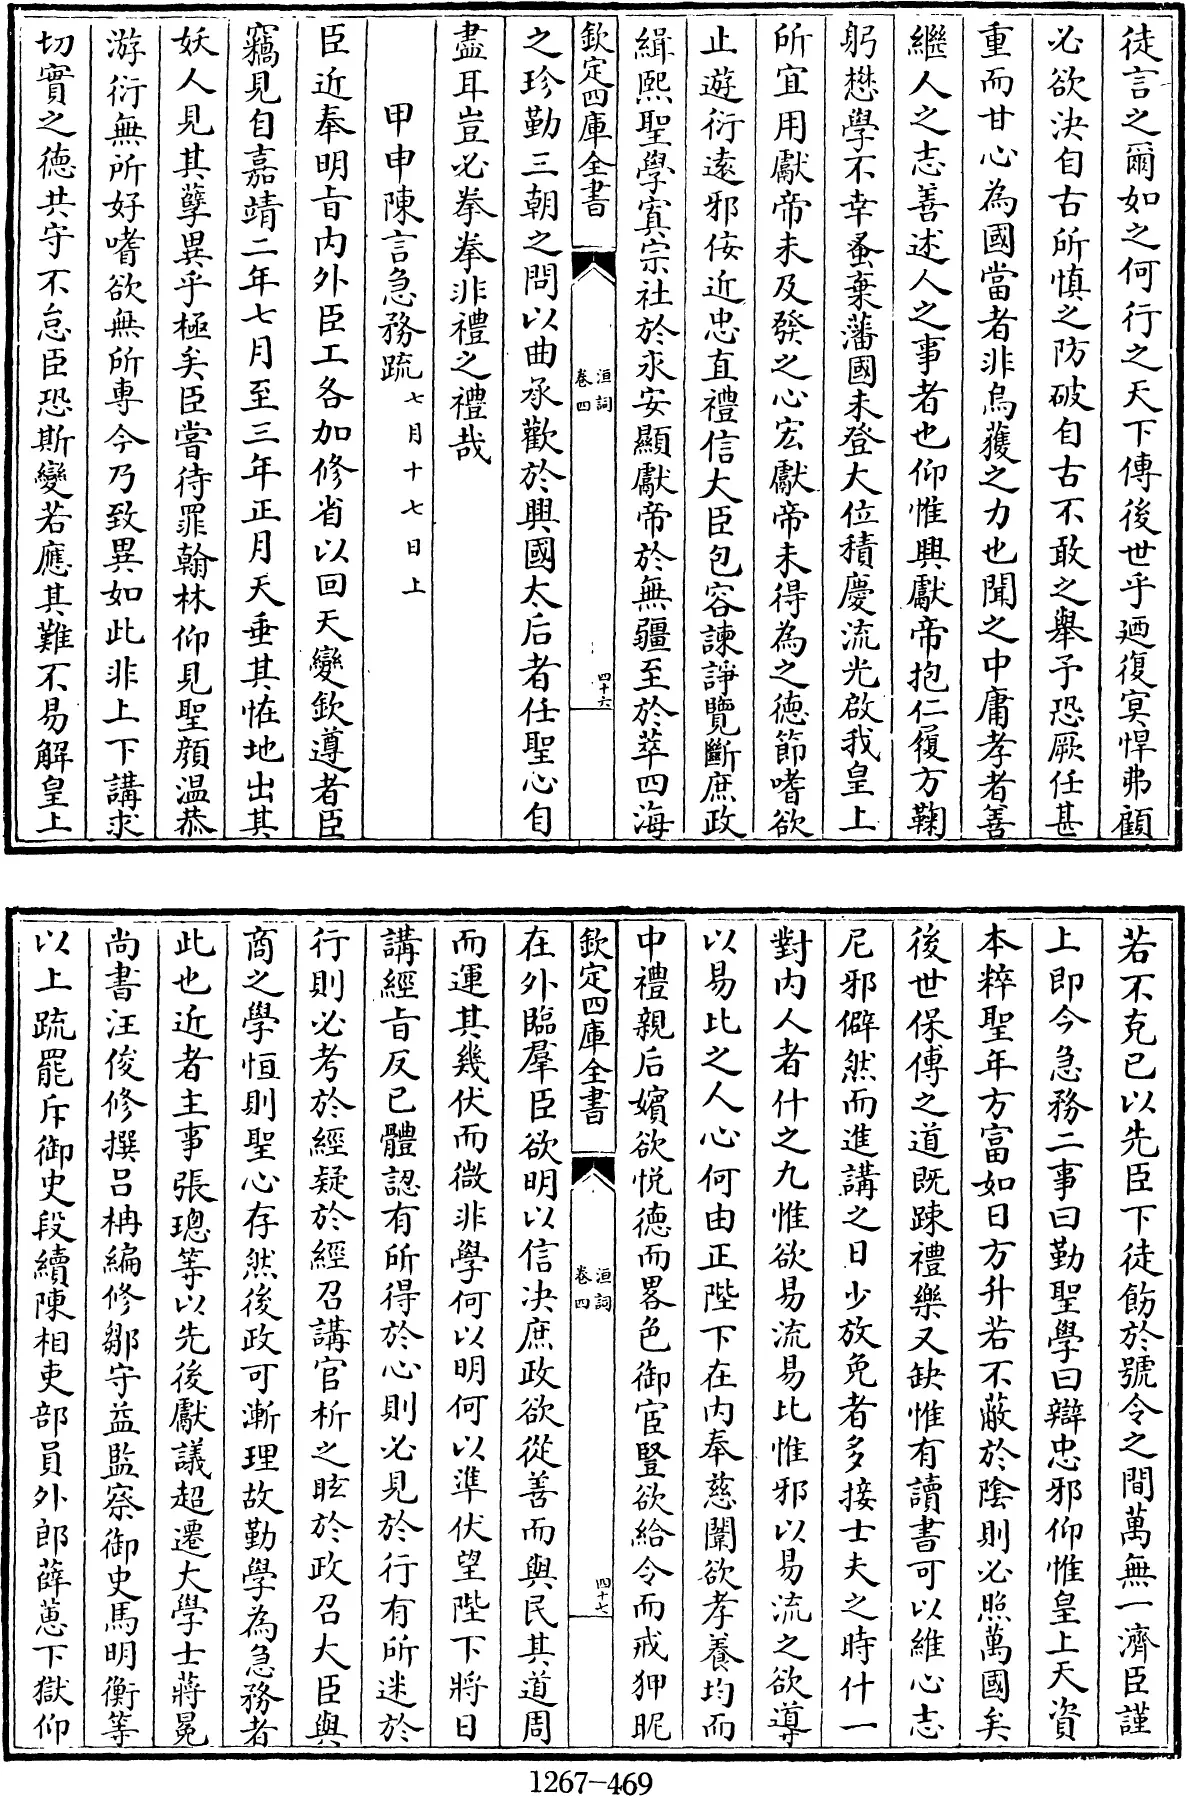 徒言之爾如之何行之天下傳後世乎廼復㝠悍弗顧
必欲決自古所慎之防破自古不敢之舉予恐厥任甚
重而甘心為國當者非烏獲之力也聞之中庸孝者善
繼人之志善述人之事者也仰惟興獻帝抱仁履方鞠
躬懋學不幸蚤棄藩國未登大位積慶流光啟我皇上
所宜用獻帝未及發之心宏獻帝未得為之德節嗜欲
止遊衍逺邪佞近忠直禮信大臣包容諫諍覽斷庶政
緝熙聖學寘宗社於永安顯獻帝於無疆至於萃四海
欽定四庫全書
洹詞
卷四
四十六
之珍勤三朝之問以曲承歡於興國太后者任聖心自
盡耳豈必拳拳非禮之禮哉
甲申陳言急務疏七月十七日上
臣近奉明旨内外臣工各加修省以回天變欽遵者臣
竊見自嘉靖二年七月至三年正月天垂其恠地出其
妖人見其孽異乎極矣臣嘗待罪翰林仰見聖顔温恭
游衍無所好嗜欲無所專今乃致異如此非上下講求
切實之德共守不怠臣恐斯變若應其難不易解皇上
若不克已以先臣下徒飭於號令之間萬無一濟臣謹
上即今急務二事曰勤聖學曰辯忠邪仰惟皇上天資
本粹聖年方富如日方升若不蔽於陰則必照萬國矣
後世保傅之道既踈禮樂又缺惟有讀書可以維心志
尼邪僻然而進講之日少放免者多接士夫之時什一
對内人者什之九惟欲易流易比惟邪以易流之欲導
以易比之人心何由正陛下在内奉慈闈欲孝養均而
中禮親后嬪欲悦德而畧色御宦豎欲給令而戒狎昵
欽定四庫全書
洹詞
卷四
四十七
在外臨羣臣欲明以信決庶政欲從善而與民其道周
而運其幾伏而微非學何以明何以準伏望陛下將日
講經旨反已體認有所得於心則必見於行有所迷於
行則必考於經疑於經召講官析之眩於政召大臣與
商之學恒則聖心存然後政可漸理故勤學為急務者
此也近者主事張璁等以先後獻議超遷大學士蔣冕
尚書汪俊修撰吕柟編修鄒守益監察御史馬明衡等
以上疏罷斥御史段續陳相吏部員外郎薛蕙下獄仰
1267-469